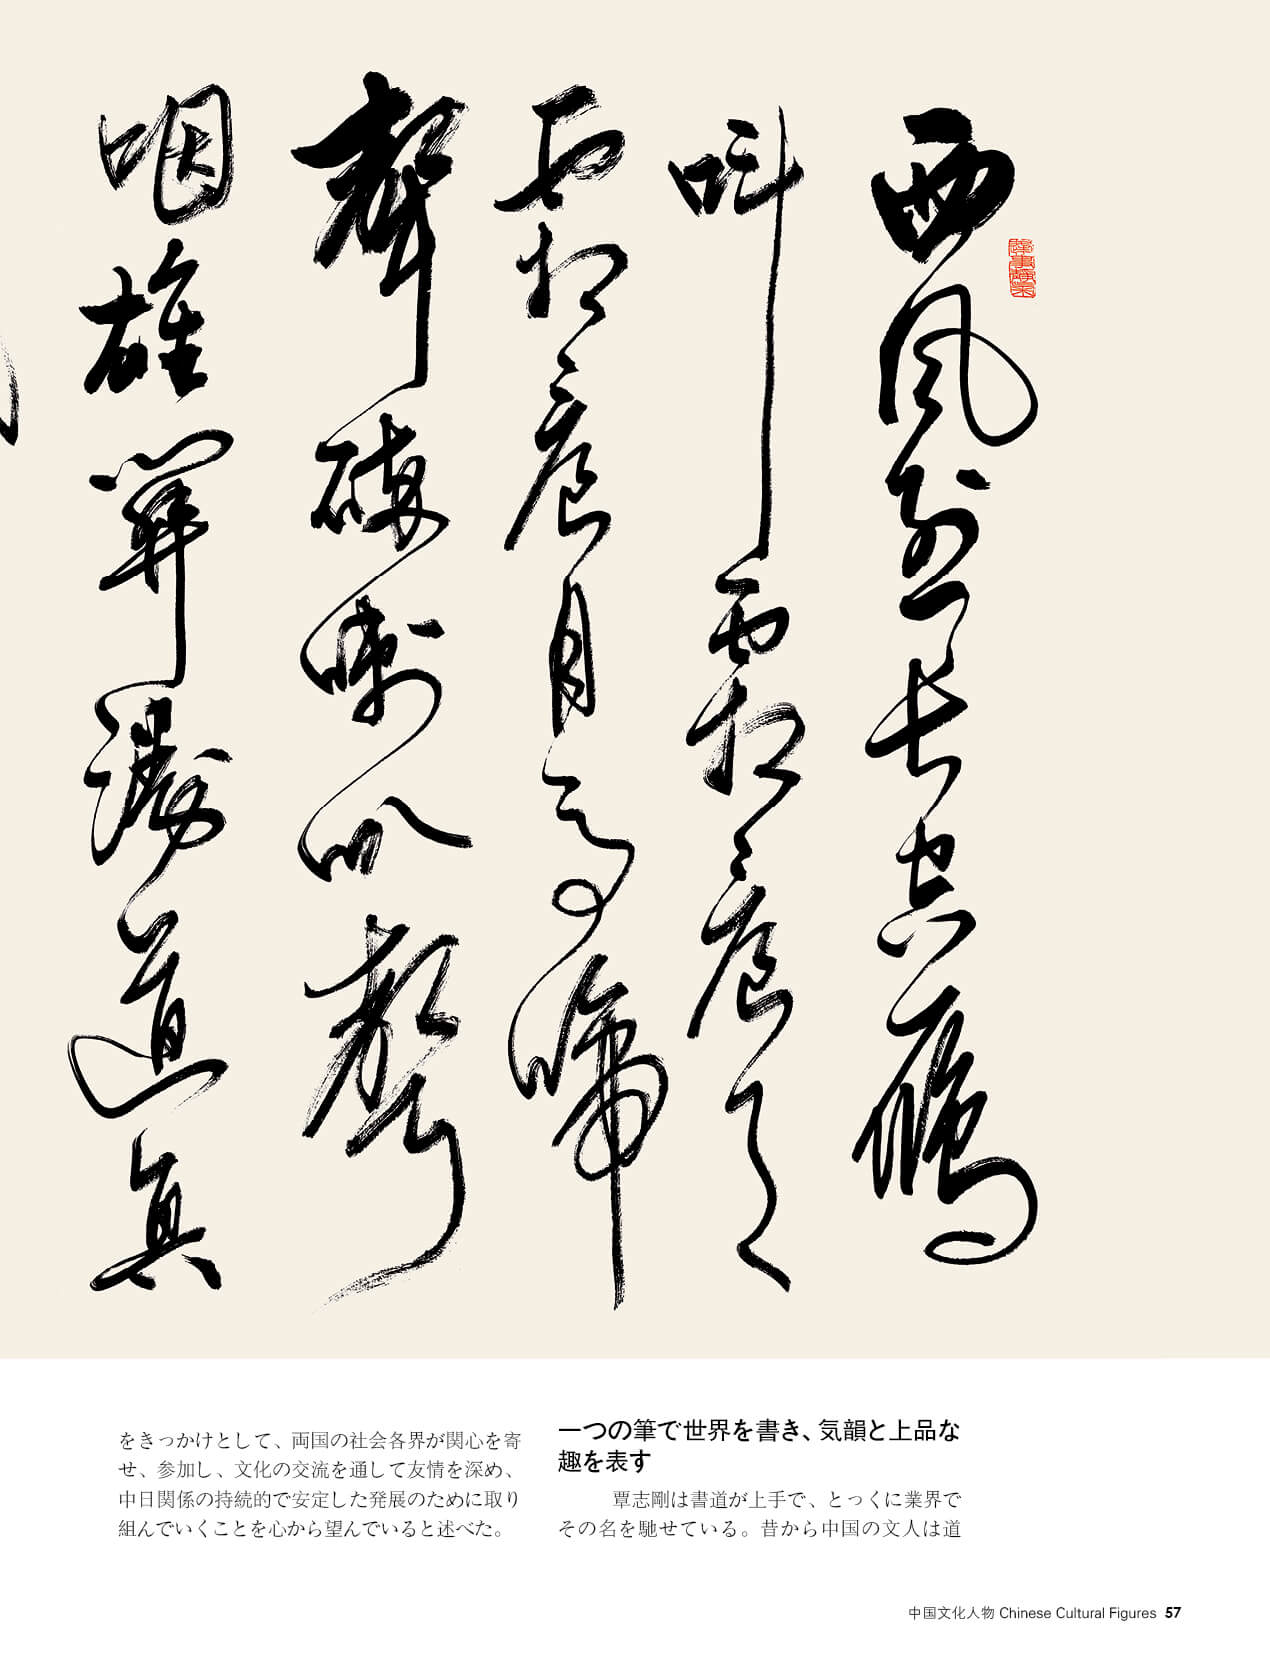 西风烈长空雁
叫霜晨月
霜晨月马蹄
聲碎喇叭聲
咽雄關漫道真
をきっかけとして、両国の社会各界が関心を寄
せ、参加し、文化の交流を通して友情を深め、
中日関係の持続的で安定した発展のために取り
組んでいくことを心から望んでいると述べた。
一つの筆で世界を書き、気韻と上品な
趣を表す
覃志剛は書道が上手で、とっくに業界で
その名を馳せている。昔から中国の文人は道
中国文化人物 Chinese Cultural Figures 57